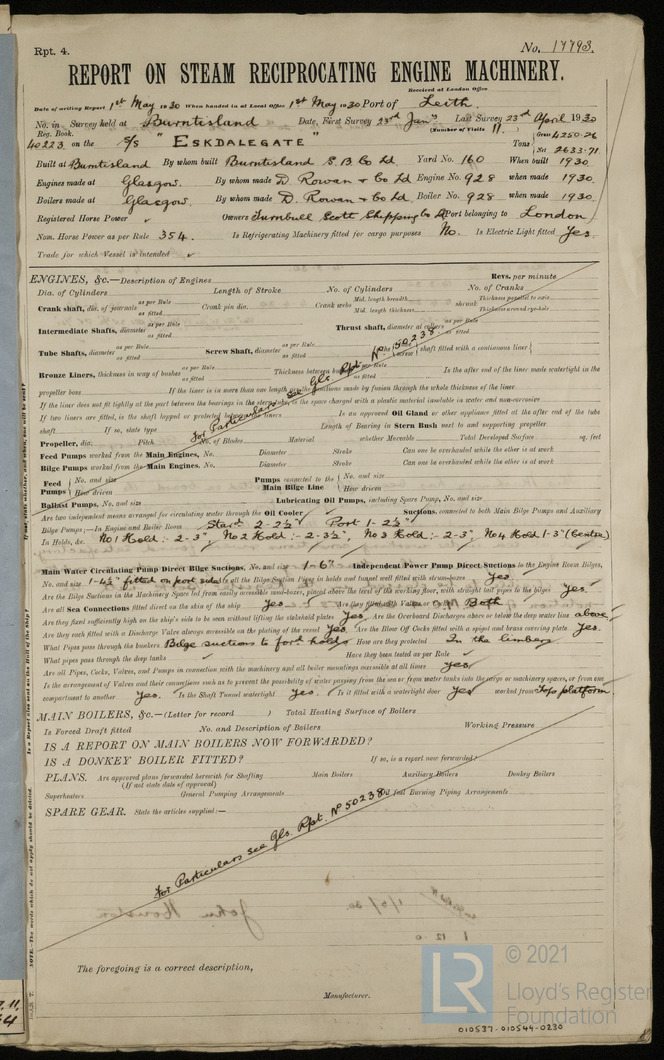 Rpt. 4.
No. 17793.
REPORT ON STEAM RECIPROCATING ENGINE MACHINERY.
Received at London Office
Date of writing Report 1st May 1930 When handed in at Local Office 1st May 1930 Port of Leith.
No. in Survey held at Burntisland Date, First Survey 23rd Jany Last Survey 23rd April 1930
Reg. Book. (Number of Visits 11.)
40223 on the S/S "ESKDALEGATE" Tons Gross 4250.26 Net 2633.71
Built at Burntisland By whom built Burntisland S.B Co Ld. Yard No. 160 When built 1930
Engines made at Glasgow. By whom made D. Rowan & Co Ld Engine No. 928 when made 1930.
Boilers made at Glasgow. By whom made D. Rowan & Co Ld Boiler No. 928 when made 1930.
Registered Horse Power Owners Turnbull Scott Shipping Co Ld Port belonging to London
Nom. Horse Power as per Rule 354. Is Refrigerating Machinery fitted for cargo purposes No. Is Electric Light fitted Yes.
Trade for which Vessel is intended
ENGINES, &c.—Description of Engines Revs. per minute
Dia. of Cylinders Length of Stroke No. of Cylinders No. of Cranks
Crank shaft, dia. of journals as per Rule as fitted Crank pin dia. Crank webs Mid. length breadth Mid. length thickness shrunk Thickness parallel to axis Thickness around eye-hole
Intermediate Shafts, diameter as per Rule as fitted Thrust shaft, diameter at collars as per Rule as fitted
Tube Shafts, diameter as per Rule as fitted Screw Shaft, diameter as per Rule as fitted Is the screw shaft fitted with a continuous liner
Bronze Liners, thickness in way of bushes as per Rule as fitted Thickness between bushes as per Rule as fitted Is the after end of the liner made watertight in the
propeller boss If the liner is in more than one length are the junctions made by fusion through the whole thickness of the liner
If the liner does not fit tightly at the part between the bearings in the stern tube, is the space charged with a plastic material insoluble in water and non-corrosive
If two liners are fitted, is the shaft lapped or protected between the liners Is an approved Oil Gland or other appliance fitted at the after end of the tube
shaft If so, state type Length of Bearing in Stern Bush next to and supporting propeller
Propeller, dia. Pitch No. of Blades Material whether Moveable Total Developed Surface sq. feet
Feed Pumps worked from the Main Engines, No. Diameter Stroke Can one be overhauled while the other is at work
Bilge Pumps worked from the Main Engines, No. Diameter Stroke Can one be overhauled while the other is at work
Feed Pumps No. and size How driven Pumps connected to the Main Bilge Line No. and size How driven
Ballast Pumps, No. and size Lubricating Oil Pumps, including Spare Pump, No. and size
Are two independent means arranged for circulating water through the Oil Cooler Suctions, connected to both Main Bilge Pumps and Auxiliary
Bilge Pumps;—In Engine and Boiler Room Stard 2-2½" Port 1-2½"
In Holds, &c. No 1 Hold:- 2-3", No 2 Hold:- 2-3½", No 3 Hold:- 2-3", No 4 Hold 1-3" (Centre)
Main Water Circulating Pump Direct Bilge Suctions, No. and size 1-6" Independent Power Pump Direct Suctions to the Engine Room Bilges,
No. and size 1-4½" fitted on port side. Are all the Bilge Suction Pipes in holds and tunnel well fitted with strum-boxes Yes.
Are the Bilge Suctions in the Machinery Space led from easily accessible mud-boxes, placed above the level of the working floor, with straight tail pipes to the bilges Yes.
Are all Sea Connections fitted direct on the skin of the ship Yes. Are they fitted with Valves or Cocks Both
Are they fixed sufficiently high on the ship's side to be seen without lifting the stokehold plates Yes. Are the Overboard Discharges above or below the deep water line above.
Are they each fitted with a Discharge Valve always accessible on the plating of the vessel Yes Are the Blow Off Cocks fitted with a spigot and brass covering plate Yes.
What Pipes pass through the bunkers Bilge suctions to ford holds How are they protected In the limbers
What pipes pass through the deep tanks Have they been tested as per Rule
Are all Pipes, Cocks, Valves, and Pumps in connection with the machinery and all boiler mountings accessible at all times yes.
Is the arrangement of Valves and their connections such as to prevent the possibility of water passing from the sea or from water tanks into the cargo or machinery spaces, or from one
compartment to another Yes. Is the Shaft Tunnel watertight Yes. Is it fitted with a watertight door Yes worked from Top platform.
MAIN BOILERS, &c.—(Letter for record ) Total Heating Surface of Boilers
Is Forced Draft fitted No. and Description of Boilers Working Pressure
IS A REPORT ON MAIN BOILERS NOW FORWARDED?
IS A DONKEY BOILER FITTED? If so, is a report now forwarded?
PLANS. Are approved plans forwarded herewith for Shafting Main Boilers Auxiliary Boilers Donkey Boilers
(If not state date of approval)
Superheaters General Pumping Arrangements Oil fuel Burning Piping Arrangements
SPARE GEAR. State the articles supplied:—
For Particulars see Gls. Rpt. No 50238.
For Particulars see Gls. Rpt. No 50238
The foregoing is a correct description,
Manufacturer.
© 2021
LR
Lloyd's Register
Foundation
010537-010544-0230